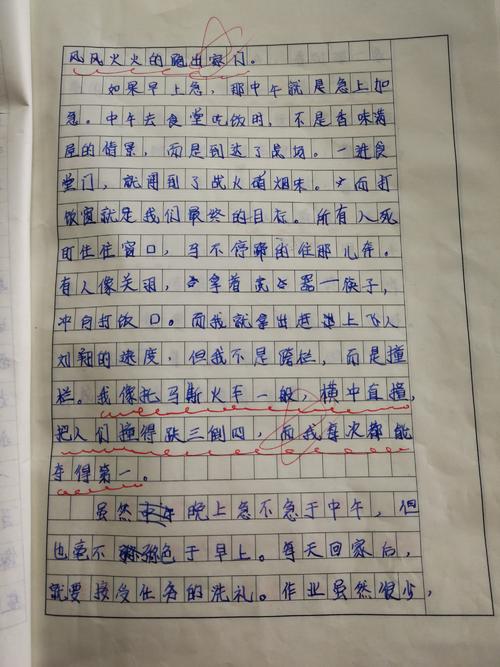 风风火火的跑出家门。
如果早上急，那中午就是急上加
急。中午去食堂吃饭时，不是香味满
屋的借景，而是到达了战场。一进食
堂门，就闻到了战火硝烟味。而打
饭窗就是我们最终的目标。所有人死
盯住窗口，马不停蹄的往那儿奔。
有人像关羽，拿着武器一筷子，
冲向打饭口。而我就拿出赶上飞人
刘翔的速度，但我不是跨栏，而是撞
栏。我像托马斯火车一般，横冲直撞，
把人们撞得跌三倒四，而我每次都能
夺得第一。
虽然晚上急不急于中午，但
也毫不逊色于早上。每天回家后，
就要接受任务的洗礼。作业虽然很少，